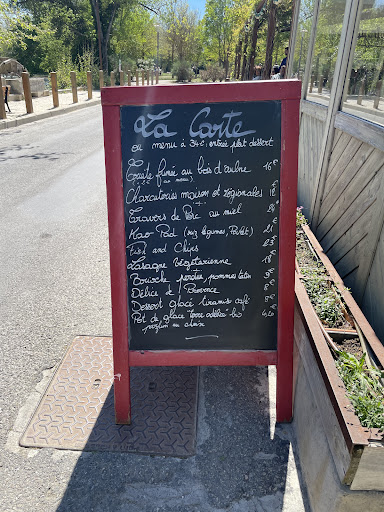 La Carte
ou menu à 34€ : entrée plat dessert
Truite fumée au bois d'aulne 16€
(+2€ au menu)
Charcuteries maison et régionales 12€
Travers de Porc au miel 24€
Kao Pad (riz, légumes, Poulet) 21€
Fish and Chips 23€
Lasagne végétarienne 18€
Brioche perdue, pommes tatin 9€
Délice de Provence 8€
Dessert glacé tiramisu café 9€
Pot de glace Terre adélice bio 4,50
parfum au choix